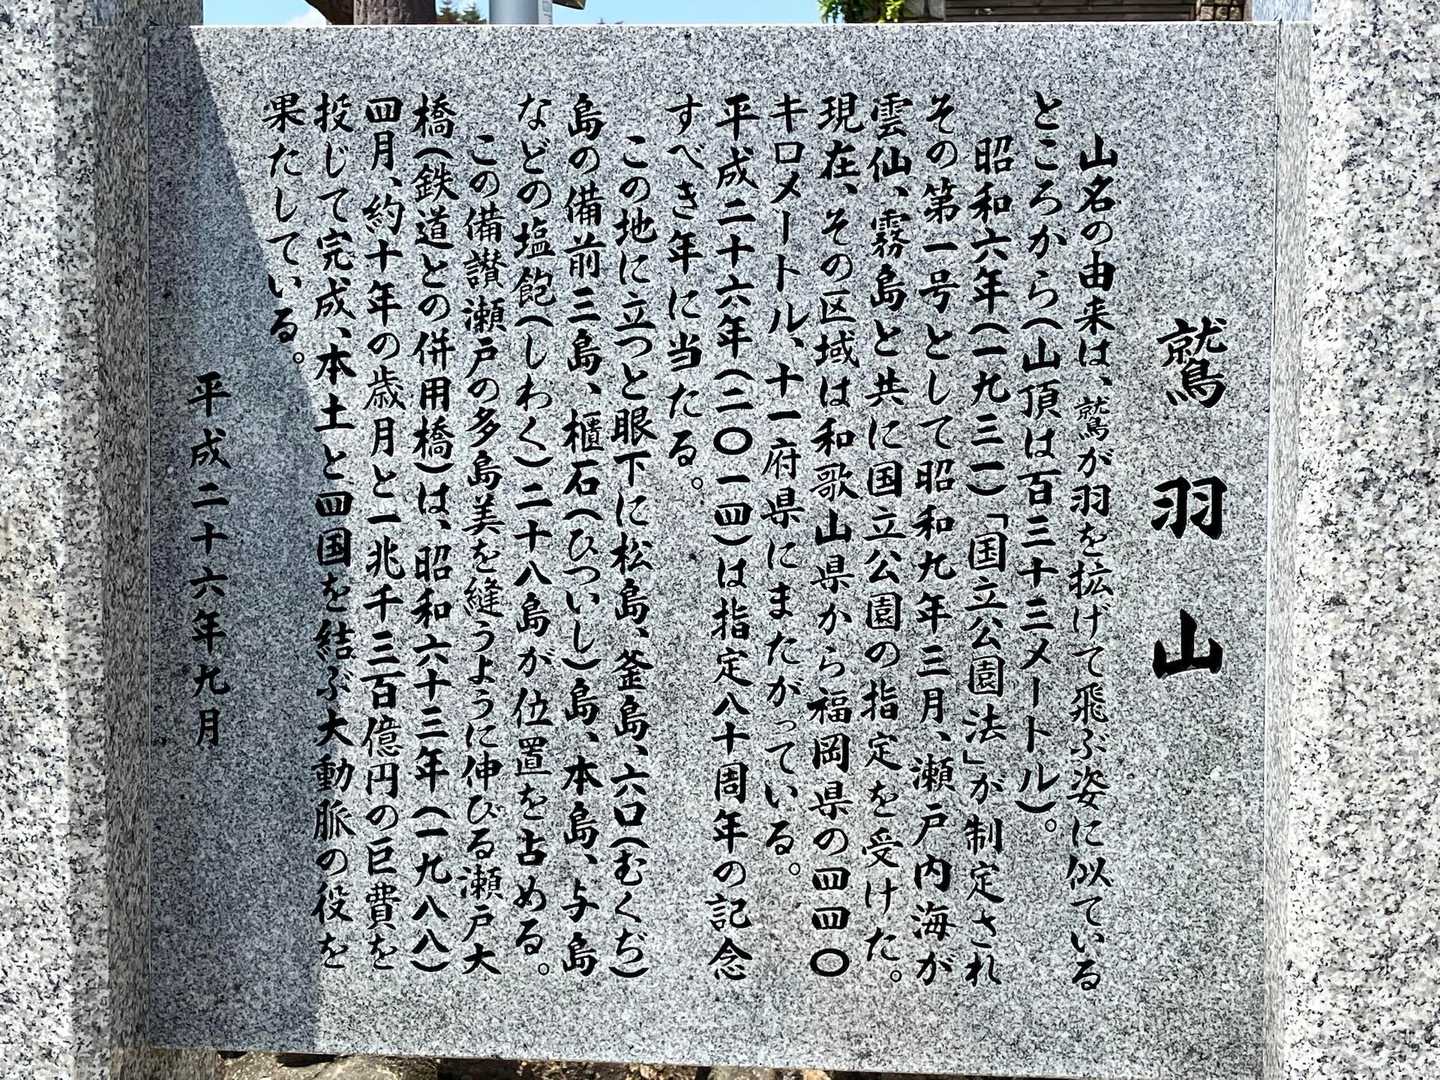 鷲羽山
山名の由来は、鷲が羽を拡げて飛ぶ姿に似ている
ところから(山頂は百三十三メートル)。
昭和六年(一九三一)「国立公園法」が制定され
その第一号として昭和九年三月、瀬戸内海が
雲仙、霧島と共に国立公園の指定を受けた。
現在、その区域は和歌山県から福岡県の四四〇
キロメートル、十一府県にまたがっている。
平成二十六年(二〇一四)は指定八十周年の記念
すべき年に当たる。
この地に立つと眼下に松島、釜島、六口(むくぢ)
島の備前三島、櫃石(ひついし)島、本島、与島
などの塩飽(しわく)二十八島が位置を占める。
この備讃瀬戸の多島美を縫うように伸びる瀬戸大
橋(鉄道との併用橋)は、昭和六十三年(一九八八)
四月、約十年の歳月と一兆千三百億円の巨費を
投じて完成、本土と四国を結ぶ大動脈の役を
果たしている。
平成二十六年九月